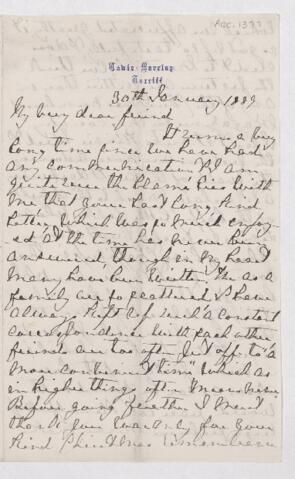 Acc. 1397
Turriff
30th January 1889
My very dear friend
It seems a very
long time since we have had
any communication & I am
quite sure the blame lies with
me that your last long kind
letter which was so much enjoy
-ed at the time has never been
answered, though in my heart
many have been written. We as a
family are so scattered & have
always kept up such a constant
correspondence with each other
friends are too oft put off to a
more convenient time which as
in higher things often never
Before going further I must
thank you warmly for your
kind Christmas remembrance